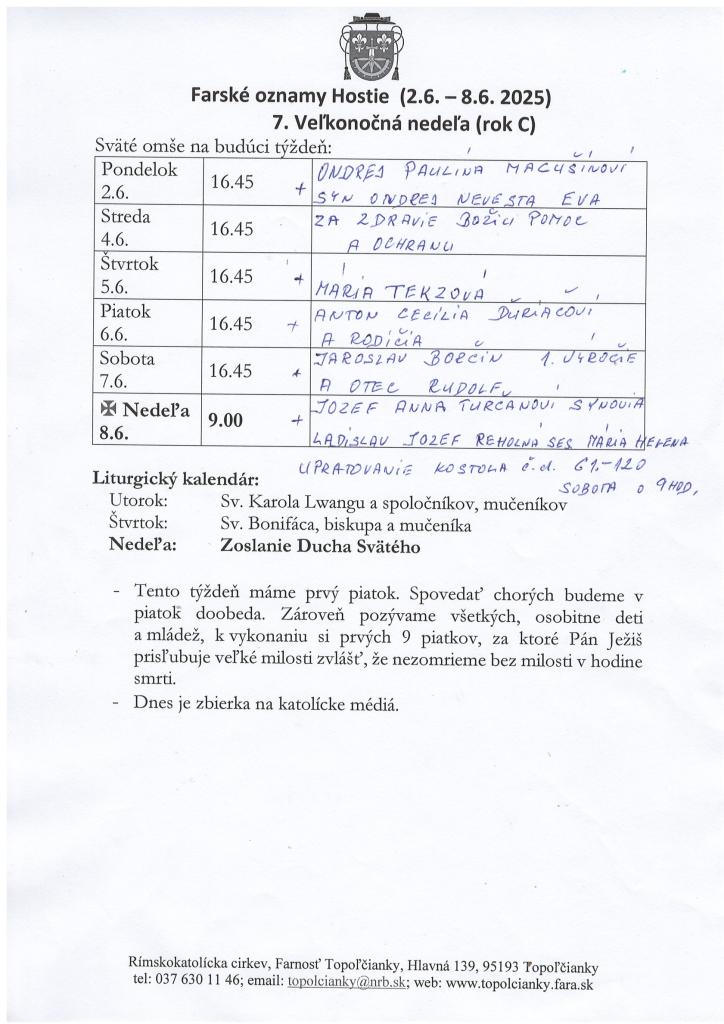 Farské oznamy Hostie (2.6. – 8.6. 2025)
7. Veľkonočná nedeľa (rok C)
Sväté omše na budúci týždeň:
Pondelok 16.45 + ONDREJ PAULÍNA MAČUŠINOVÍ
2.6. SYN ONDREJ NEVESTA EVA
Streda 16.45 ZA ZDRAVIE BOŽIU POMOC
4.6. A OCHRANU
Štvrtok 16.45 +
5.6. MÁRIA
Piatok 16.45 + ANTON CECÍLIA ĎURIAČOVÍ
6.6. A RODIČIA
Sobota 16.45 + JAROSLAV 1. VÝROČIE
7.6. A OTEC RUDOLF
✠ Nedeľa 9.00 + JOZEF ANNA TURČANOVÍ SYNOVIA
8.6. LADISLAV JOZEF REHOĽNÁ SES. MÁRIA HELENA
UPRATOVANIE KOSTOLA č.d. 61.-120
SOBOTA O 9 HOD,
Liturgický kalendár:
Utorok: Sv. Karola Lwangu a spoločníkov, mučeníkov
Štvrtok: Sv. Bonifáca, biskupa a mučeníka
Nedeľa: Zoslanie Ducha Svätého
- Tento týždeň máme prvý piatok. Spovedať chorých budeme v
piatok doobeda. Zároveň pozývame všetkých, osobitne deti
a mládež, k vykonaniu si prvých 9 piatkov, za ktoré Pán Ježiš
prisľubuje veľké milosti zvlášť, že nezomrieme bez milosti v hodine
smrti.
- Dnes je zbierka na katolícke médiá.
Rímskokatolícka cirkev, Farnosť Topoľčianky, Hlavná 139, 95193 Topoľčianky
tel: 037 630 11 46; email: topolcianky@nrb.sk; web: www.topolcianky.fara.sk